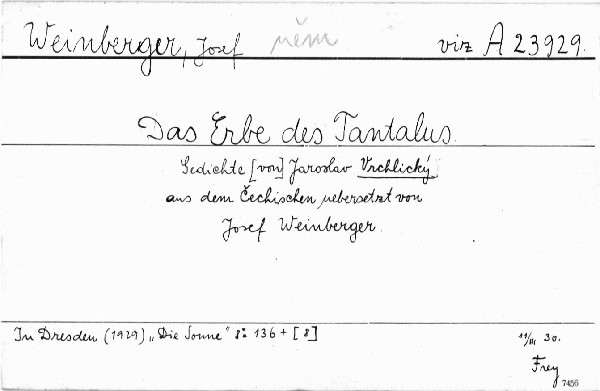 Weinberger, Josef něm viz A 23929.
Das Erbe des Tantalus.
Gedichte [von] Jaroslav Vrchlický
aus dem Čechischen uebersetzt von
Josef Weinberger.
In Dresden (1929) „Die Sonne" 8: 136 + [8]
11/III 30.
Frey
7456